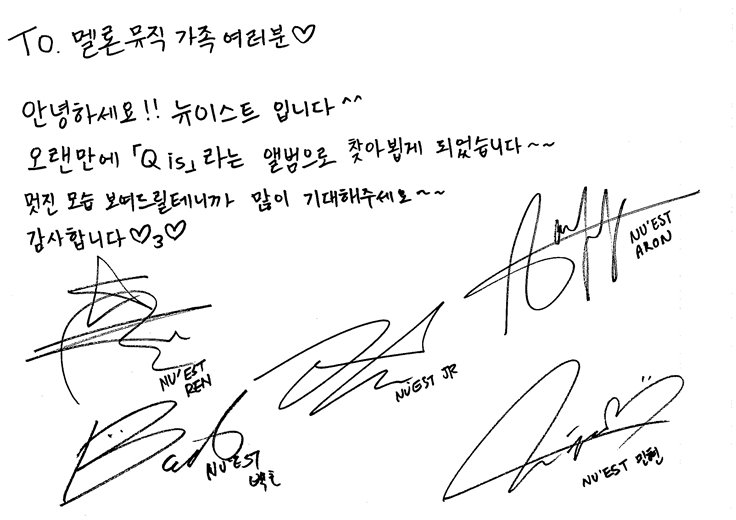 To. 멜론뮤직 가족 여러분♡
안녕하세요!! 뉴이스트 입니다^^
오랜만에 「Q is」라는 앨범으로 찾아뵙게 되었습니다~~
멋진 모습 보여드릴테니까 많이 기대해주세요~~
감사합니다♡3♡
NU'EST ARON
NU'EST REN
NU'EST JR
NU'EST 백호
NU'EST 민현